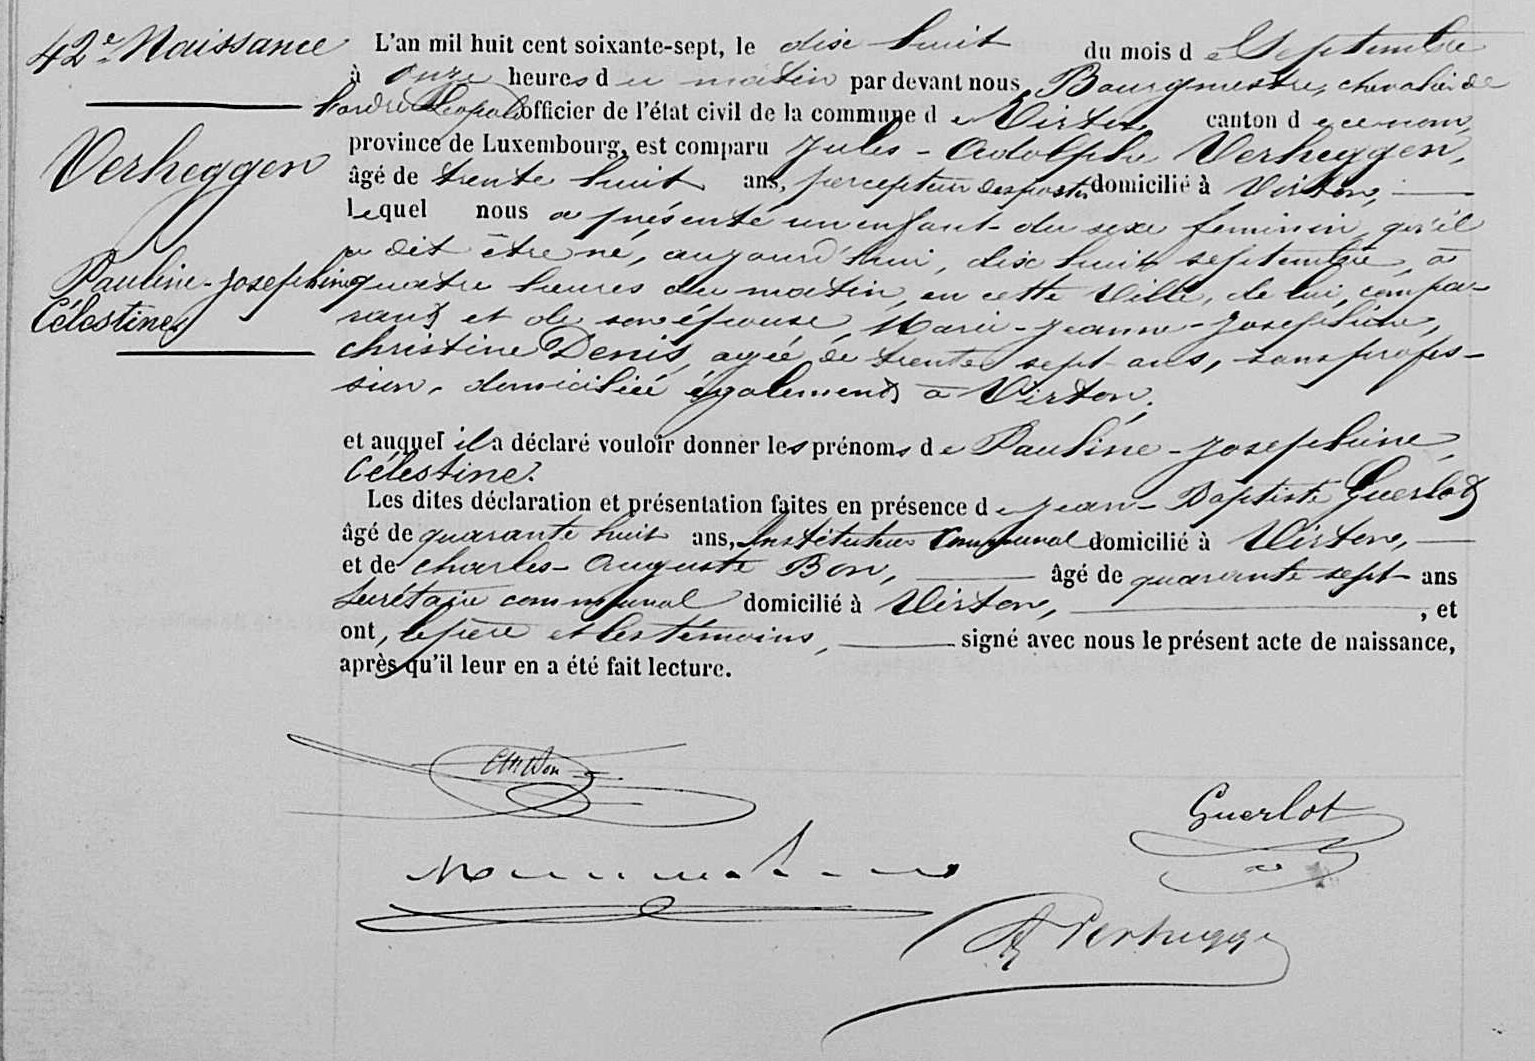 42e. Naissance
Verheggen
Pauline-Josephine
Célestine,
L'an mil huit cent soixante-sept, le dix huit du mois de Septembre
à onze heures du matin par devant nous Bourgmestre, chevalier de
l'ordre Léopold officier de l'état civil de la commune de Virton canton de ce nom,
province de Luxembourg, est comparu Jules-Adolphe Verheggen,
âgé de trente huit ans, percepteur des postes domicilié à Virton,
lequel nous a présenté un enfant du sexe feminin, qu'il
a dit être né, aujourd'hui, dix huit septembre, à
quatre heures du matin, en cette Ville, de lui, compa-
rant et de son épouse, Marie-Jeanne-Josephine,
christine Denis, agée de trente sept ans, sans profes-
sion, domiciliée également à Virton,
et auquel il a déclaré vouloir donner les prénoms de Pauline-Josephine,
Célestine.
Les dites déclaration et présentation faites en présence de Jean-Baptiste Guerlot
âgé de quarante huit ans, Instituteur communal domicilié à Virton,
et de Charles-Auguste Bon, âgé de quarante sept ans
Secrétaire communal domicilié à Virton, , et
ont, le père et les témoins, signé avec nous le présent acte de naissance,
après qu'il leur en a été fait lecture.
Bon
Guerlot
Verhegge